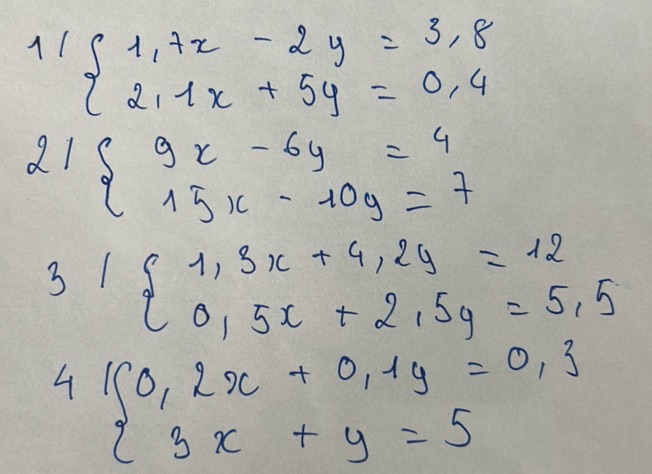 1/ { 1,7x - 2y = 3,8
2,1x + 5y = 0,4
2/ { 9x - 6y = 4
15x - 10y = 7
3/ { 1,3x + 4,2y = 12
0,5x + 2,5y = 5,5
4/ { 0,2x + 0,1y = 0,3
3x + y = 5